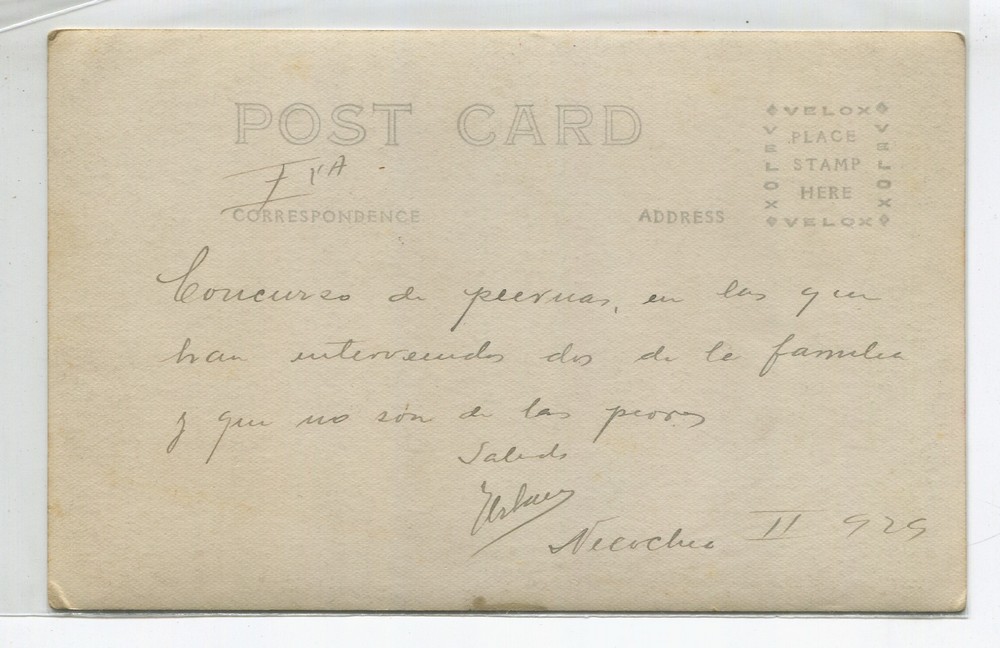 POST CARD
I ra -
CORRESPONDENCE
ADDRESS
VELOX
VELOX
VELOX
VELOX
PLACE
STAMP
HERE
Concurso de piernas, en las que
han intervenido dos de la familia
y que no són de las peores
Saludos
Necochea II 929